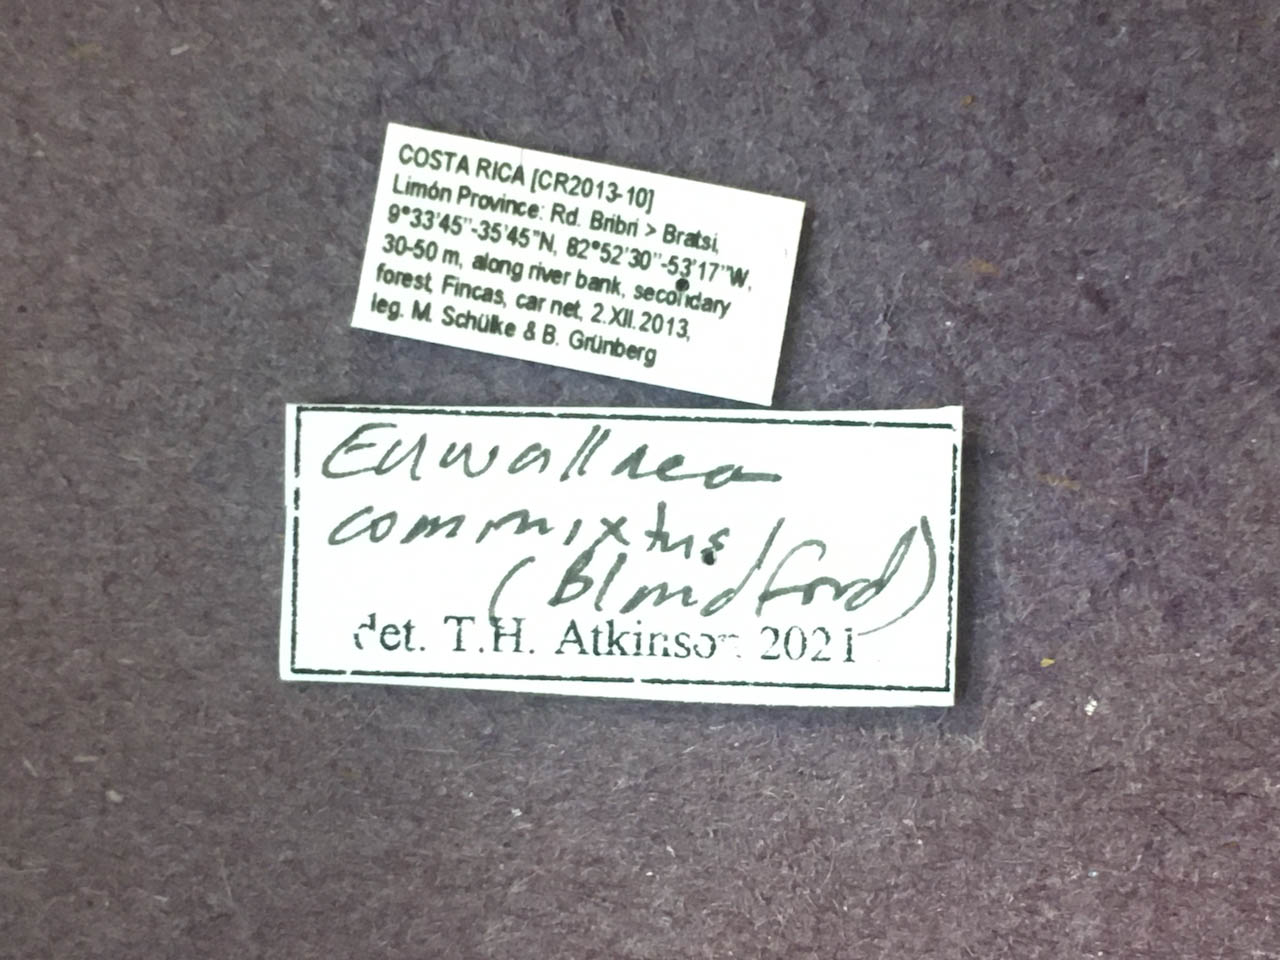 COSTA RICA [CR2013-10]
Limón Province: Rd. Bribri > Bratsi,
9°33'45"-35'45"N, 82°52'30"-53'17"W,
30-50 m, along river bank, secondary
forest, Fincas, car net, 2.XII.2013,
leg. M. Schülke & B. Grünberg
Euwallacea
commixtus
(Blandford)
det. T.H. Atkinson 2021